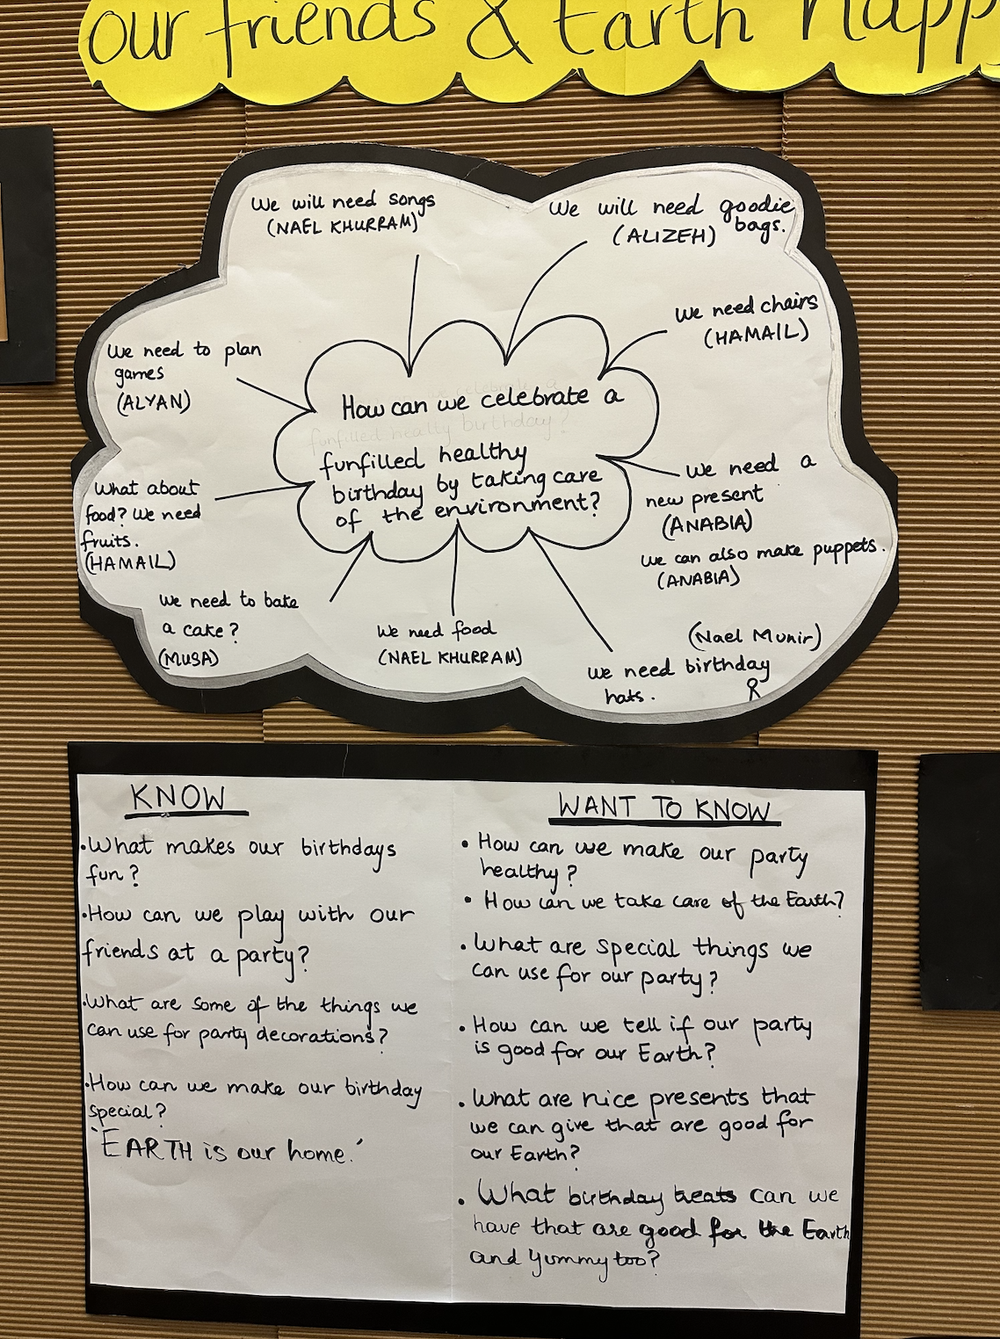 our friends & Earth happ
We will need songs
(NAEL KHURRAM)
We will need goodie
bags.
(ALIZEH)
We need chairs
(HAMAIL)
We need to plan
games
(ALYAN)
How can we celebrate a
funfilled healthy birthday?
funfilled healthy
birthday by taking care
of the environment?
We need a
new present
(ANABIA)
We can also make puppets.
(ANABIA)
What about
food? We need
fruits.
(HAMAIL)
We need to bake
a cake?
(MUSA)
We need food
(NAEL KHURRAM)
(Nael Munir)
We need birthday
hats.
KNOW
•What makes our birthdays
fun?
•How can we play with our
friends at a party?
•What are some of the things we
can use for party decorations?
•How can we make our birthday
special?
'EARTH is our home.'
WANT TO KNOW
• How can we make our party
healthy?
• How can we take care of the Earth?
• What are special things we
can use for our party?
• How can we tell if our party
is good for our Earth?
• What are nice presents that
we can give that are good for
our Earth?
• What birthday treats can we
have that are good for the Earth
and yummy too?